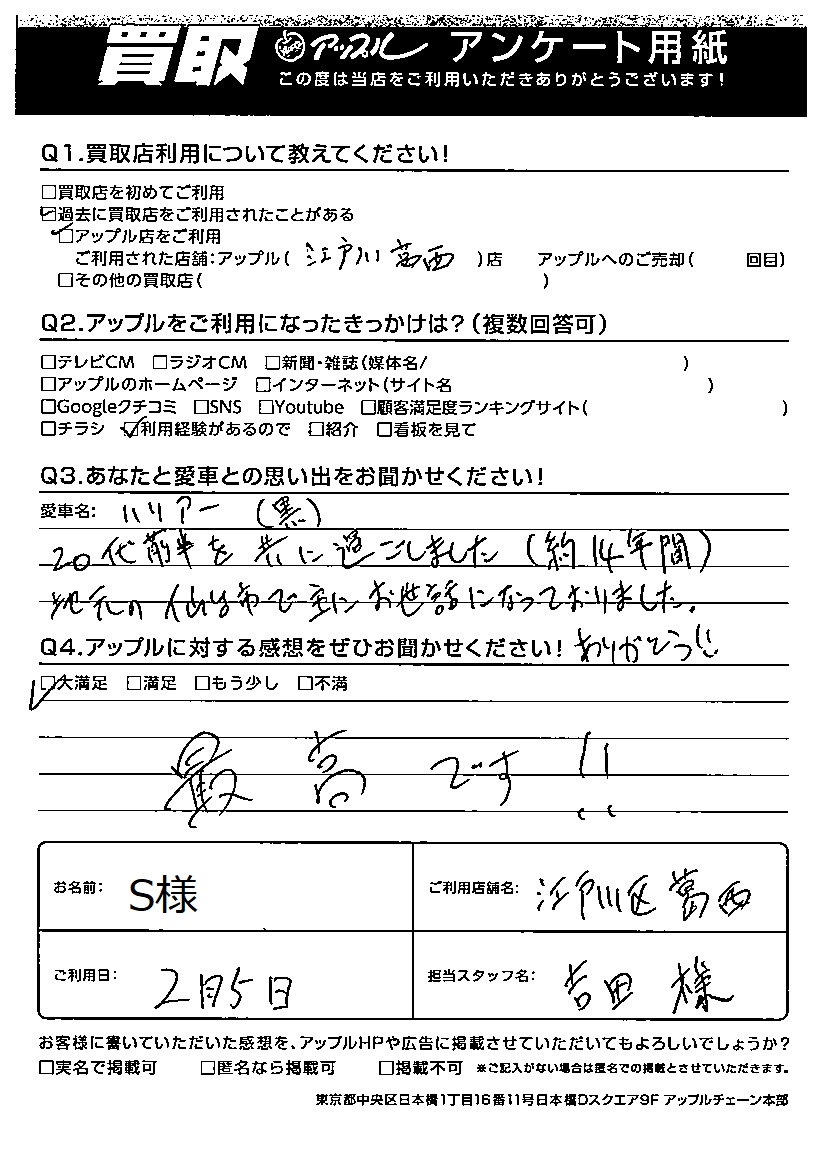 買取 アップル アンケート用紙
この度は当店をご利用いただきありがとうございます!
Q1.買取店利用について教えてください!
□買取店を初めてご利用
☑過去に買取店をご利用されたことがある
☑アップル店をご利用
ご利用された店舗:アップル( 江戸川葛西 )店 アップルへのご売却( 回目)
□その他の買取店( )
Q2.アップルをご利用になったきっかけは?(複数回答可)
□テレビCM □ラジオCM □新聞・雑誌(媒体名/ )
□アップルのホームページ □インターネット(サイト名 )
□Googleクチコミ □SNS □Youtube □顧客満足度ランキングサイト( )
□チラシ ☑利用経験があるので □紹介 □看板を見て
Q3.あなたと愛車との思い出をお聞かせください!
愛車名: ハリアー (黒)
20代前半を共に過ごしました(約14年間)
地元の仙台市で主にお世話になっておりました。
Q4.アップルに対する感想をぜひお聞かせください! ありがとう!!
☑大満足 □満足 □もう少し □不満
最高です!!
お名前: S様 ご利用店舗名: 江戸川区葛西
ご利用日: 2月5日 担当スタッフ名: 吉田様
お客様に書いていただいた感想を、アップルHPや広告に掲載させていただいてもよろしいでしょうか?
□実名で掲載可 □匿名なら掲載可 □掲載不可 ※ご記入がない場合は匿名での掲載とさせていただきます。
東京都中央区日本橋1丁目16番11号日本橋Dスクエア9F アップルチェーン本部